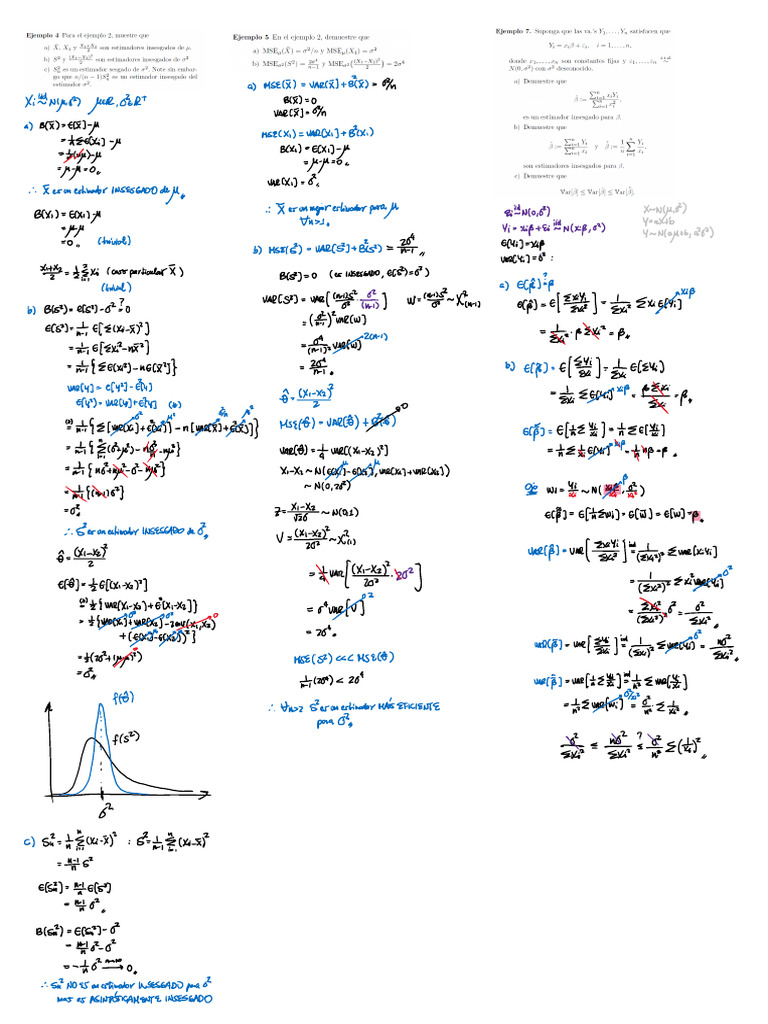 Ejemplo 4 Para el ejemplo 2, muestre que
a) X̄, X₁ y (X₁+X₂)/2 son estimadores insesgados de μ.
b) S² y (X₁−X₂)²/2 son estimadores insesgados de σ²
c) Sₙ² es un estimador sesgado de σ². Note sin embar-
go que n/(n − 1)Sₙ² es un estimador insesgado del
estimador σ².
Xᵢ iid~ N(μ,σ²) μ∈R, σ²∈R⁺
a) B(X̄) = E(X̄) − μ
= 1/n Σ E(Xᵢ) − μ
= 1/n (nμ) − μ
= μ − μ = 0
∴ X̄ es un estimador INSESGADO de μ
B(X₁) = E(X₁) − μ
= μ − μ
= 0 (trivial)
(X₁+X₂)/2 = 1/2 Σ Xᵢ (caso particular X̄)
(trivial)
b) B(S²) = E(S²) − σ² ?= 0
E(S²) = 1/(n-1) E[Σ(Xᵢ−X̄)²]
= 1/(n-1) E[ΣXᵢ² − nX̄²]
= 1/(n-1) {ΣE(Xᵢ²) − nE(X̄²)}
VAR[Y] = E[Y²] − E²[Y]
E[Y²] = VAR[Y] + E²[Y] (a)
(a) = 1/(n-1) {Σ[VAR(Xᵢ) + E²(Xᵢ)] − n[VAR(X̄) + E²(X̄)]}
= 1/(n-1) {Σ(σ²+μ²) − nσ²/n − nμ²}
= 1/(n-1) {nσ² + nμ² − σ² − nμ²}
= 1/(n-1) {(n-1)σ²}
= σ²
∴ S² es un estimador INSESGADO de σ²
θ̂ = (X₁−X₂)²/2
E[θ̂] = 1/2 E[(X₁−X₂)²]
(a) = 1/2 {VAR(X₁−X₂) + E²(X₁−X₂)}
= 1/2 {VAR(X₁) + VAR(X₂) − 2COV(X₁,X₂)
+ (E(X₁) − E(X₂))²}
= 1/2 (2σ² + (μ−μ)²)
= σ²
f(θ̂)
f(S²)
σ²
c) Sₙ² = 1/n Σ(Xᵢ−X̄)² : S² = 1/(n-1) Σ(Xᵢ−X̄)²
= (n-1)/n S²
E[Sₙ²] = (n-1)/n E(S²)
= (n-1)/n σ²
B(Sₙ²) = E(Sₙ²) − σ²
= (n-1)/n σ² − σ²
= −1/n σ² n→∞ → 0
∴ Sₙ² NO ES un estimador INSESGADO para σ²
mas es ASINTÓTICAMENTE INSESGADO
Ejemplo 5 En el ejemplo 2, demuestre que
a) MSEμ(X̄) = σ²/n y MSEμ(X₁) = σ²
b) MSEσ²(S²) = 2σ⁴/(n−1) y MSEσ²((X₁−X₂)²/2) = 2σ⁴
a) MSE(X̄) = VAR[X̄] + B²(X̄) = σ²/n
B(X̄) = 0
VAR(X̄) = σ²/n
MSE(X₁) = VAR[X₁] + B²(X₁)
B(X₁) = E(X₁) − μ
= μ−μ = 0
VAR(X₁) = σ²
∴ X̄ es un mejor estimador para μ
∀n>1
b) MSE(S²) = VAR[S²] + B²(S²) = 2σ⁴/(n-1)
B(S²) = 0 (es INSESGADO, E(S²) = σ²)
VAR(S²) = VAR[(n-1)S²/σ² · σ²/(n-1)] W = (n-1)S²/σ² ~ χ²(n-1)
= (σ²/(n-1))² VAR(W)
= σ⁴/(n-1)² VAR(W) 2(n-1)
= 2σ⁴/(n-1)
θ̂ = (X₁−X₂)²/2
MSE(θ̂) = VAR(θ̂) + B²(θ̂) 0
VAR(θ̂) = 1/4 VAR[(X₁−X₂)²]
X₁−X₂ ~ N(E(X₁) − E(X₂), VAR(X₁) + VAR(X₂))
~ N(0, 2σ²)
Z = (X₁−X₂)/√2σ ~ N(0,1)
V = (X₁−X₂)²/2σ² ~ χ²(1)
= 1/4 VAR[(X₁−X₂)²/2σ² · 2σ²]
= σ⁴ VAR[V] 2
= 2σ⁴
MSE(S²) <<< MSE(θ̂)
1/(n-1) (2σ⁴) < 2σ⁴
∴ ∀n>2 S² es un estimador MÁS EFICIENTE
para σ²
Ejemplo 7. Suponga que las va.'s Y₁, . . . , Yₙ satisfacen que
Yᵢ = xᵢβ + εᵢ, i = 1, . . . , n,
donde x₁, . . . , xₙ son constantes fijas y ε₁, . . . , εₙ iid~
N(0, σ²) con σ² desconocido.
a) Demuestre que
β̂ := Σⁿᵢ₌₁ xᵢYᵢ / Σⁿᵢ₌₁ xᵢ²,
es un estimador insesgado para β.
b) Demuestre que
β̃ := Σⁿᵢ₌₁ Yᵢ / Σⁿᵢ₌₁ xᵢ y β̄ := 1/n Σⁿᵢ₌₁ Yᵢ/xᵢ,
son estimadores insesgados para β.
c) Demuestre que
Var[β̂] ≤ Var[β̃] ≤ Var[β̄].
εᵢ iid~ N(0,σ²)
Yᵢ = xᵢβ + εᵢ ind~ N(xᵢβ, σ²)
E(Yᵢ) = xᵢβ
VAR(Yᵢ) = σ² :
X~N(μ,σ²)
Y=aX+b
Y~N(aμ+b, a²σ²)
a) E[β̂] ?= β
E(β̂) = E[ΣxᵢYᵢ/Σxᵢ²] = 1/Σxᵢ² Σ xᵢE[Yᵢ] xᵢβ
= 1/Σxᵢ² · β Σxᵢ² = β
b) E[β̃] = E[ΣYᵢ/Σxᵢ] = 1/Σxᵢ E(ΣYᵢ)
= 1/Σxᵢ Σ E(Yᵢ) xᵢβ = βΣxᵢ/Σxᵢ = β
E[β̄] = E[1/n Σ Yᵢ/xᵢ] = 1/n Σ E[Yᵢ/xᵢ]
= 1/n Σ 1/xᵢ E(Yᵢ) xᵢβ = 1/n nβ = β
Ojo Wᵢ = Yᵢ/xᵢ ~ N(xᵢβ/xᵢ, σ²/xᵢ²)
E[β̄] = E[1/n ΣWᵢ] = E[W̄] = E[W] = β
VAR[β̂] = VAR[ΣxᵢYᵢ/Σxᵢ²] ind= 1/(Σxᵢ²)² Σ VAR[xᵢYᵢ]
= 1/(Σxᵢ²)² Σ xᵢ² VAR(Yᵢ) σ²
= Σxᵢ²/(Σxᵢ²)² σ² = σ²/Σxᵢ²
VAR[β̃] = VAR[ΣYᵢ/Σxᵢ] ind= 1/(Σxᵢ)² Σ VAR[Yᵢ] σ² = nσ²/(Σxᵢ)²
VAR[β̄] = VAR[1/n Σ Yᵢ/xᵢ] ind= 1/n² Σ VAR[Yᵢ/xᵢ]
= 1/n² Σ VAR[Wᵢ] σ²/xᵢ² = σ²/n² Σ 1/xᵢ²
σ²/Σxᵢ² ≤ nσ²/Σxᵢ² ?≤ σ²/n² Σ(1/xᵢ)²